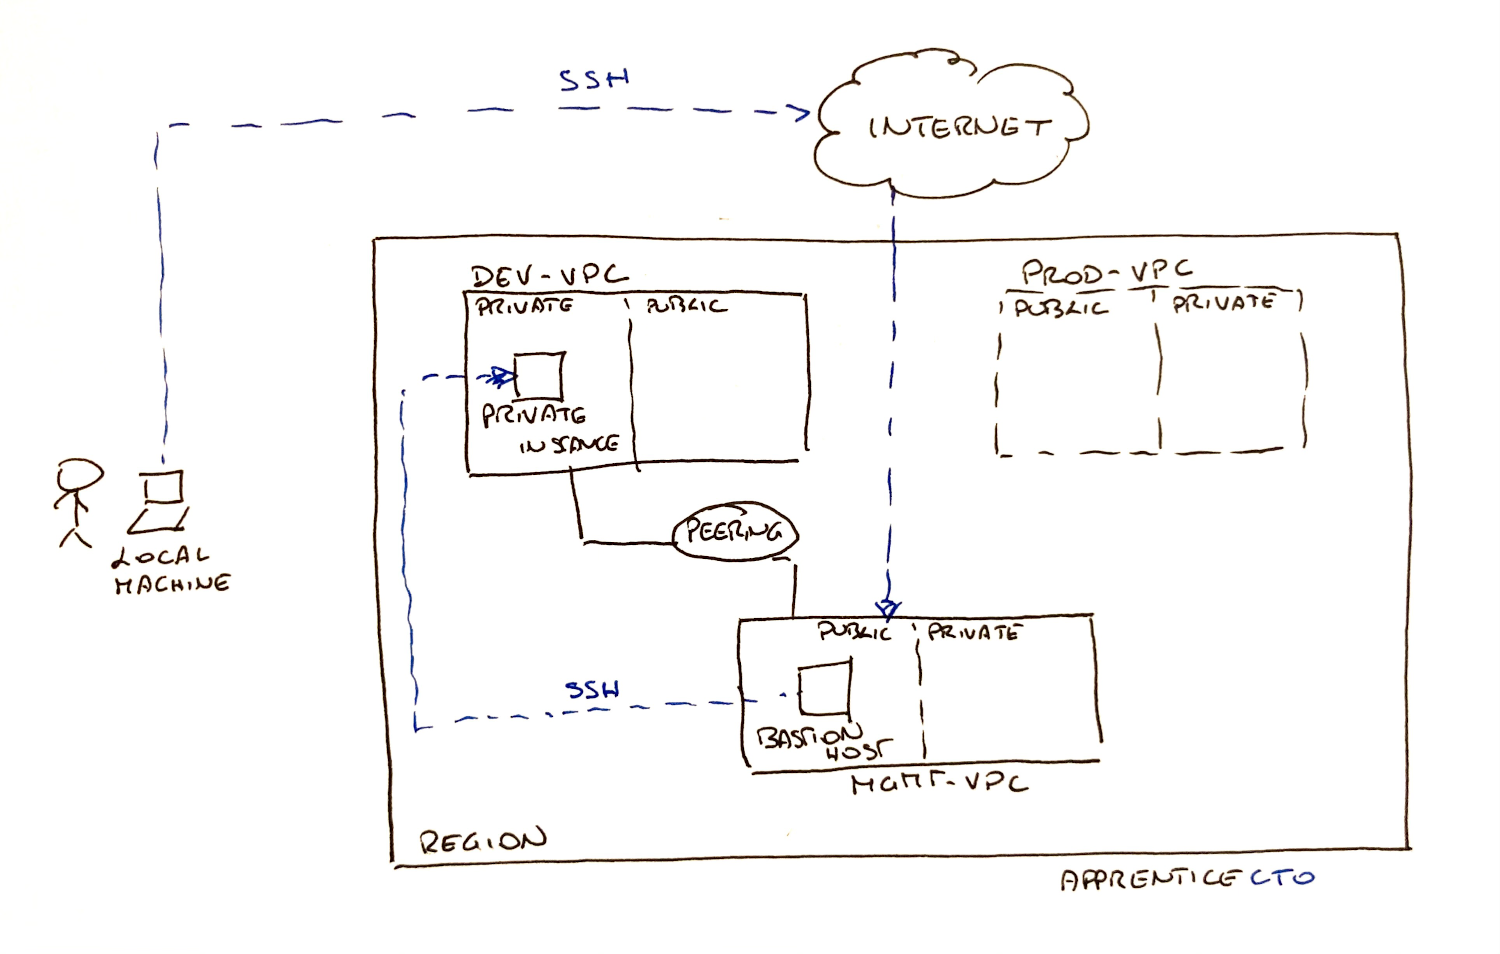 SSH
INTERNET
DEV-VPC
PRIVATE
PUBLIC
PRIVATE
INSTANCE
PROD-VPC
PUBLIC
PRIVATE
LOCAL
MACHINE
PEERING
PUBLIC
PRIVATE
SSH
BASTION
HOST
MGMT-VPC
REGION
APPRENTICECTO